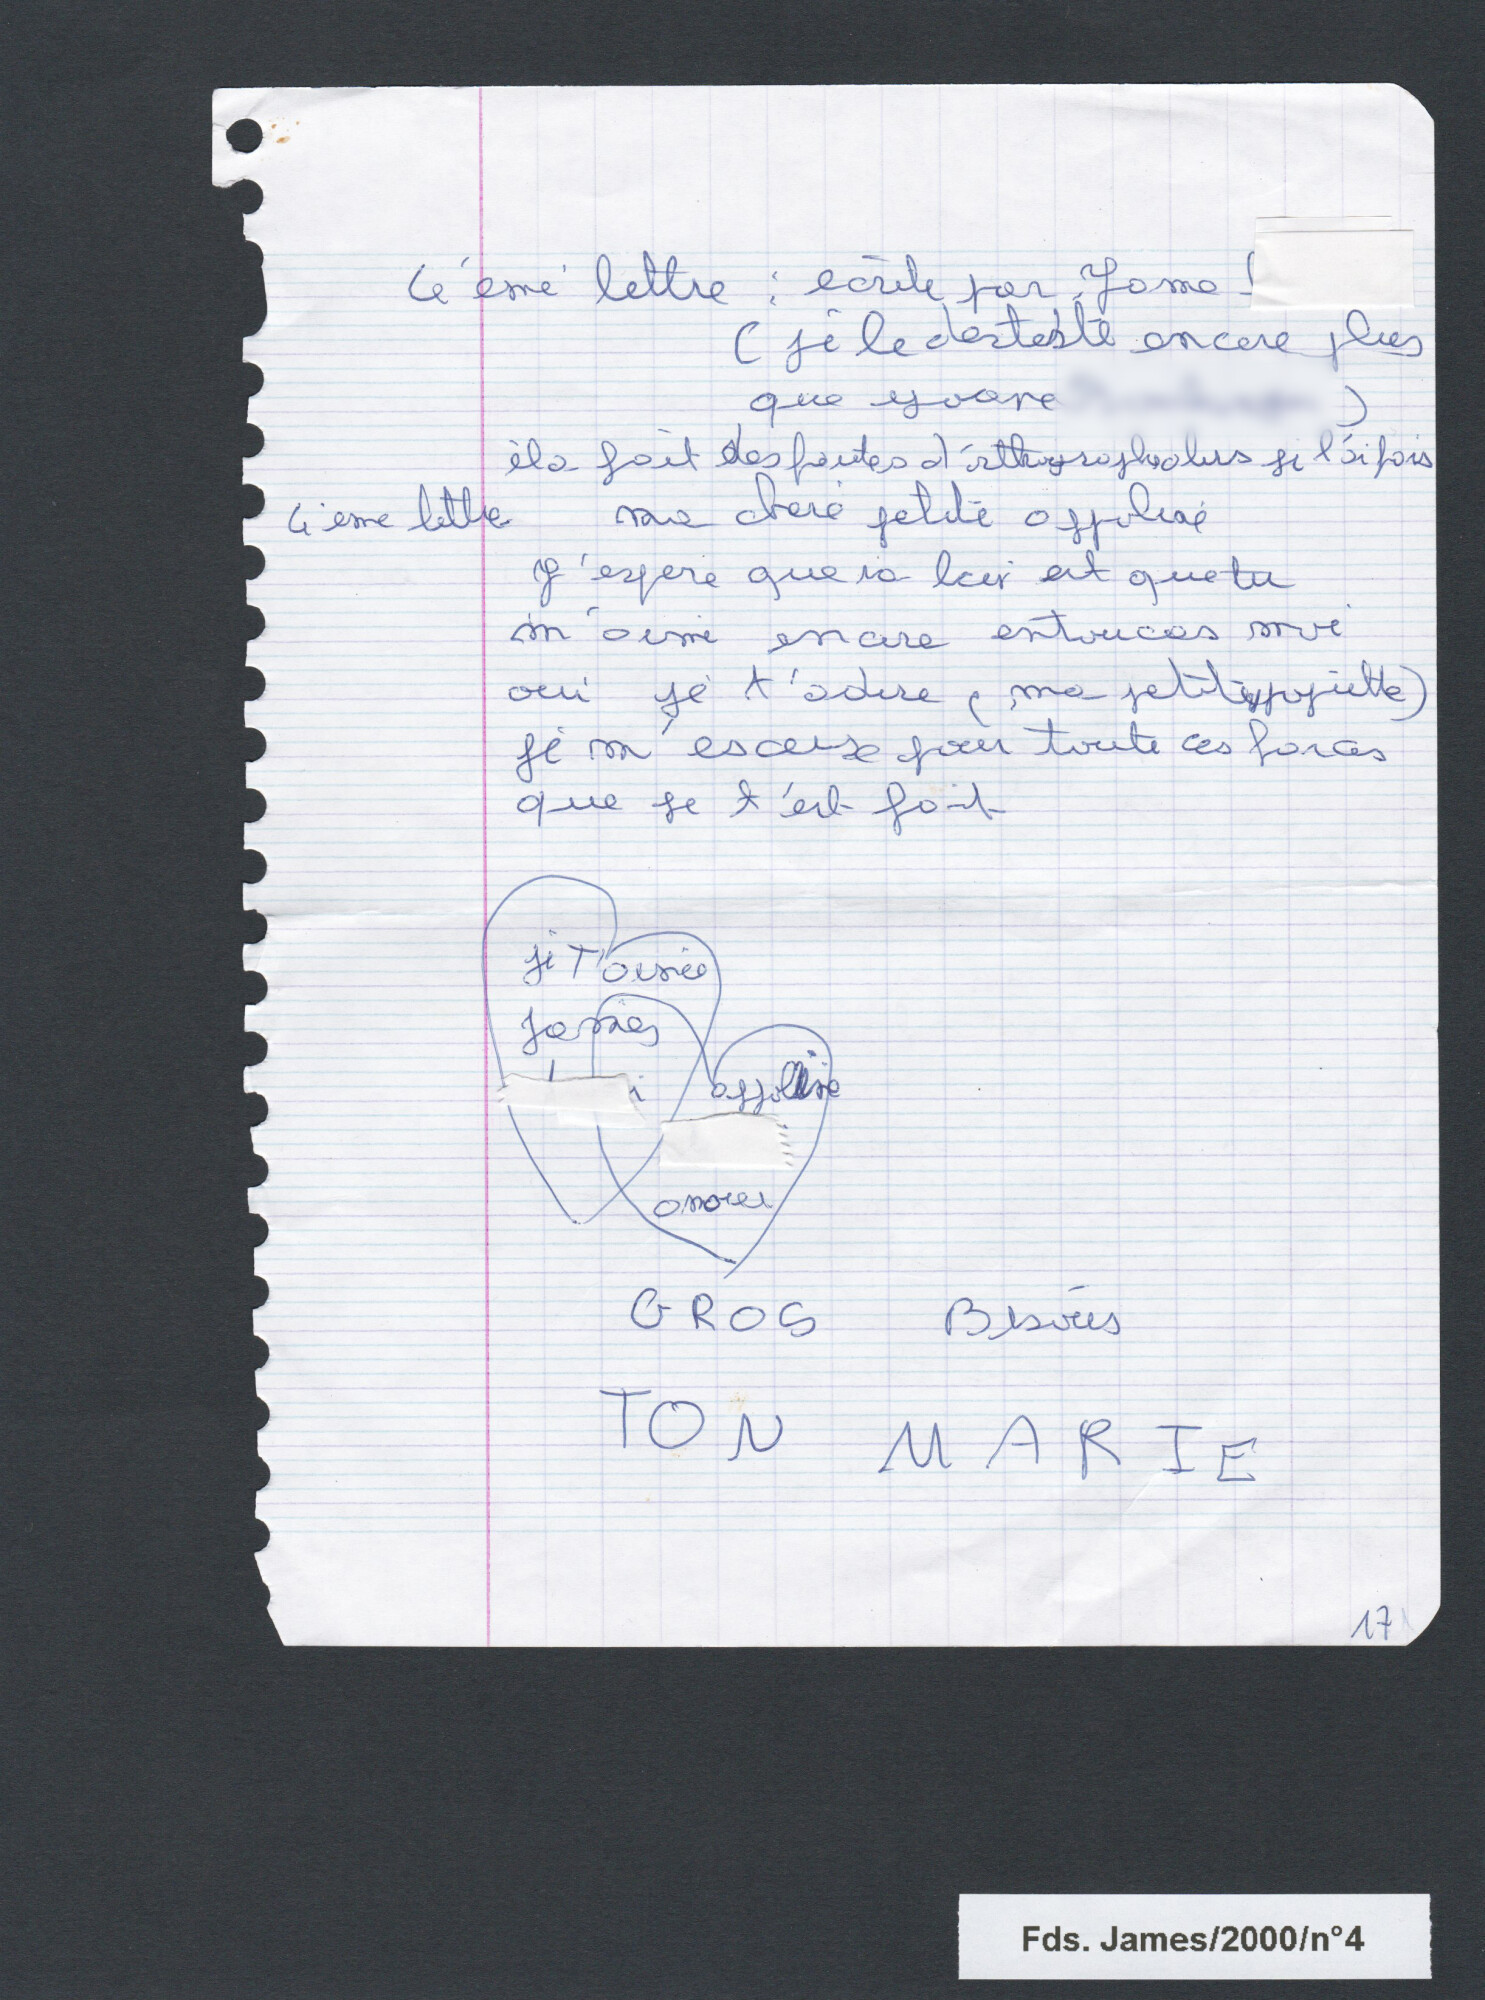 4'emé lettre : ecrite par Jame
( jé le déxtesté encore plus
que yvane )
éla fait des fautes d' si l'ai fais
4'eme lettre ma cheré petité appoliné
J'espere que sa bai est que tu
m'aimé encore entoucas moi
oui jé t'adore ( ma petite popiette)
jé m'escuse pour toute ces forces
que je t'est fait
jé T'aimée
James
appoline
amour
GROS Bisous
TON MARIE
17
Fds. James/2000/n°4